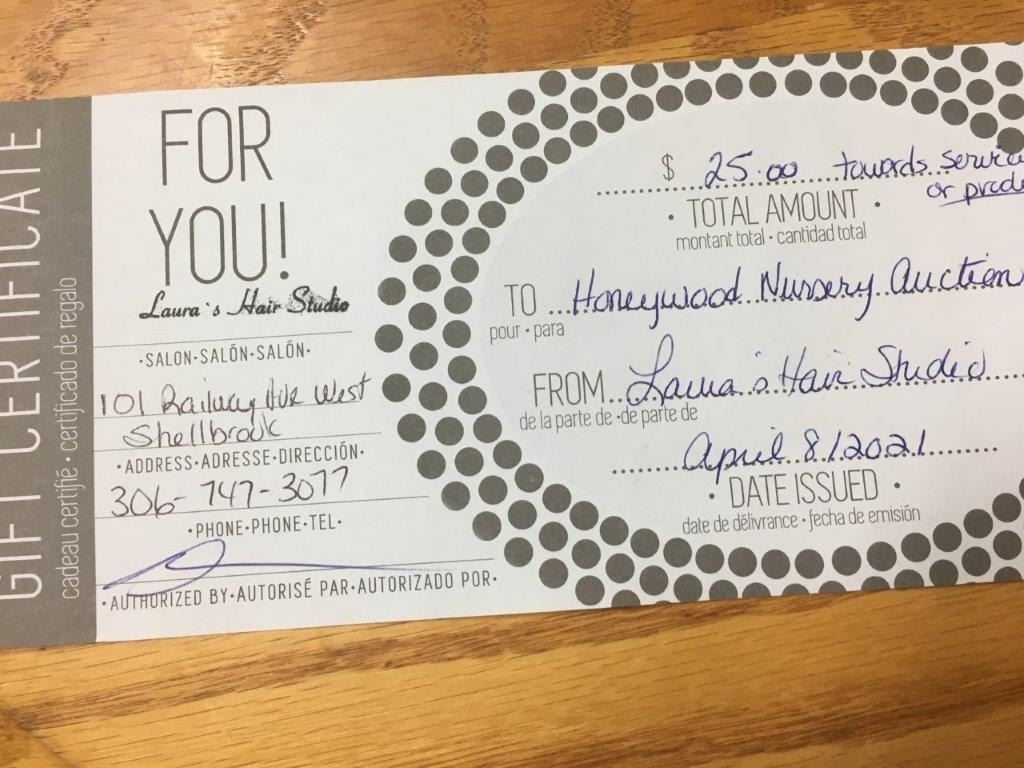 GIFT CERTIFICATE
cadeau certifié • certificado de regalo
FOR
YOU!
Laura's Hair Studio
•SALON•SALÓN•SALÓN•
101 Railway Ave West
Shellbrook
•ADDRESS•ADRESSE•DIRECCIÓN•
306-747-3077
•PHONE•PHONE•TEL•
•AUTHORIZED BY•AUTORISÉ PAR•AUTORIZADO POR•
$ 25.00 towards servic
or produ
• TOTAL AMOUNT •
montant total • cantidad total
TO Honeywood Nursery Auction
pour • para
FROM Laura's Hair Studio
de la parte de •de parte de
April 8/2021
• DATE ISSUED •
date de délivrance • fecha de emisión